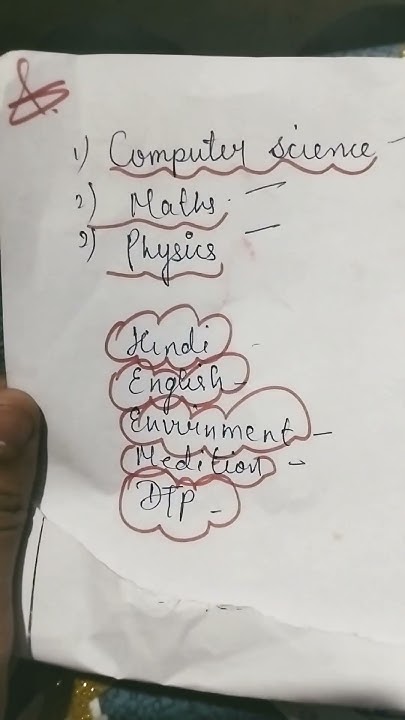 1) Computer science -
2) Maths. -
3) Physics -
Hindi
English -
Envirnment -
Medition -
DTP -